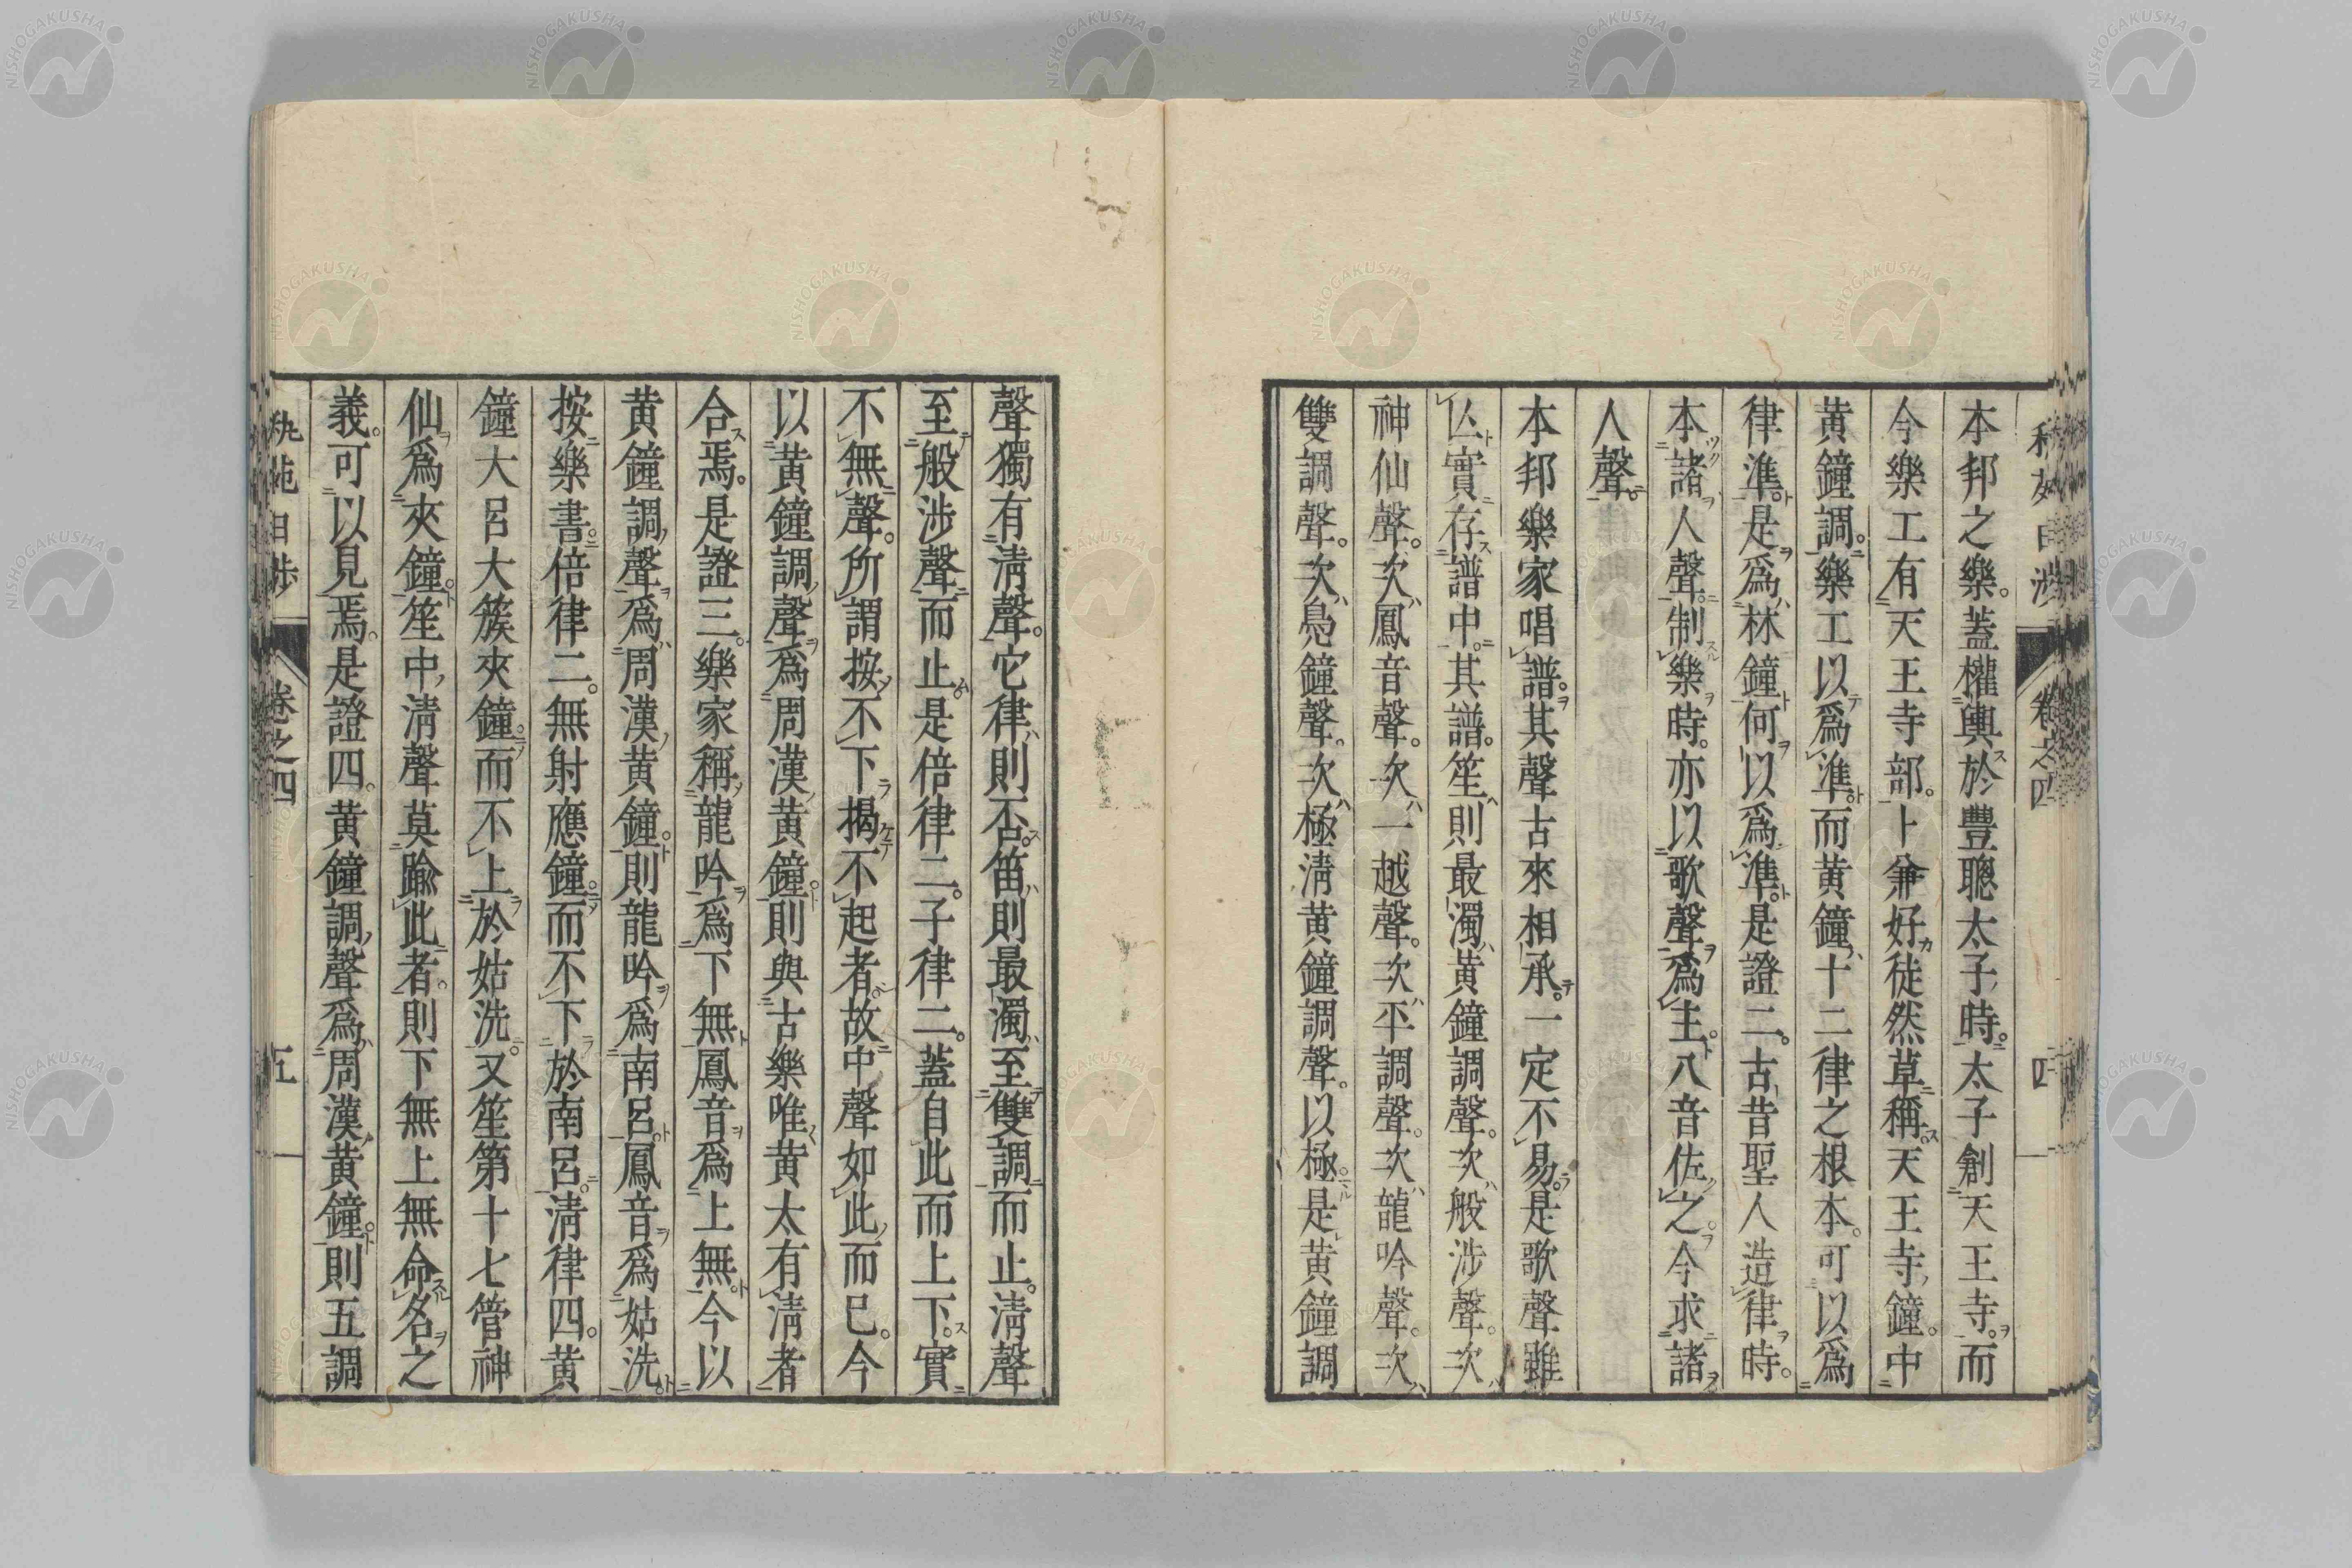 本邦之樂。蓋權輿於豐聰太子時。太子創天王寺。而
今樂工有天王寺部。卜兼好徒然草稱。天王寺鐘。中
黄鐘調。樂工以爲準。而黄鐘十二律之根本。可以爲
律準。是爲林鐘何以爲準。是證二。古昔聖人造律時。
本諸人聲。制樂時。亦以歌聲爲主。八音佐之。今求諸
人聲。
本邦樂家唱譜。其聲古來相承。一定不易。是歌聲雖
亾實存譜中。其譜。笙則最濁黄鐘調聲。次般涉聲。次
神仙聲。次鳳音聲。次一越聲。次平調聲。次龍吟聲。次
雙調聲。次鳧鐘聲。次極淸黄鐘調聲。以極是黄鐘調
卷之四
四
聲獨有淸聲。它律則否。笛則最濁至雙調而止。淸聲
至般涉聲而止。是倍律二。子律二。蓋自此而上下。實
不無聲。所謂按不下揭不起者。故中聲如此而已。今
以黄鐘調聲爲周漢黄鐘。則與古樂唯黄太有淸者
合焉。是證三。樂家稱龍吟爲下無鳳音爲上無。今以
黄鐘調聲爲周漢黄鐘。則龍吟爲南呂。鳳音爲姑洗。
按樂書。倍律二。無射應鐘。而不下於南呂。淸律四。黄
鐘大呂大簇夾鐘。而不上於姑洗。又笙第十七管神
仙爲夾鐘。笙中淸聲莫踰此者。則下無上無命名之
義。可以見焉。是證四。黄鐘調聲爲周漢黄鐘。則五調
秇苑日涉
卷之四
五